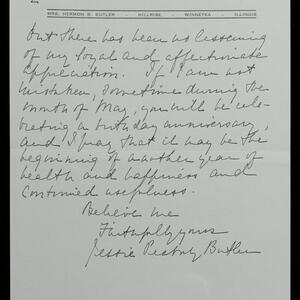 MRS. HERMON B. BUTLER · HILLRISE · WINNETKA · ILLINOIS
But there has been no lessening
of my loyal and affectionate
appreciation. If I am not
mistaken, sometime during the
month of May, you will be cele-
brating a birthday anniversary,
and I pray that it may be the
beginning of another year of
health and happiness and
continued usefulness.
Believe me
Faithfully yours
Jessie Butler